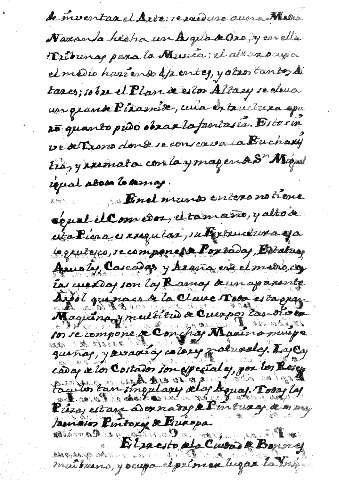 de inventar el Arte: se reduce a una Media
Naranja hecha un Asqua de Oro, y en ella
Tribunas para la Musica; el altar ocupa
el medio haziendo 4 frentes, y otros tantos Al-
tares; sobre el Plan de estos Altares se eleva
un gran de Piramide, cuia extructura apu-
ró quanto pudo obrar la fantasia. Esto sir-
ve de Trono donde se conserva la Eucharis-
tia, y remata con la ymagen de Sn. Miguel
igual a todo lo demas.
En el mundo entero no tiene
igual el Comedor, el tamaño, y alto de
esta Pieza es regular, su Extructura es a
lo grutesco, se compone de Portadas, Estatuas,
Aguilas, Cascadas y Araña, en el medio, cu-
ias cuerdas son las Ramas de un aparente
Arbol que nace de la Clave. Toda esta gran
Maquina, y multitud de Cuerpos tan diver-
sos se compone de Conchas Marinas mui pe-
queñas, y de varios colores naturales. Las Cas-
cadas de los Costados son especiales, por los
tan singulares de las Aguas. Todas las
Piezas estan adornadas de Pinturas de
famosos Pintores de Europa.
El resto de la Ciudad de
mui bueno, y ocupa el primer lugar la